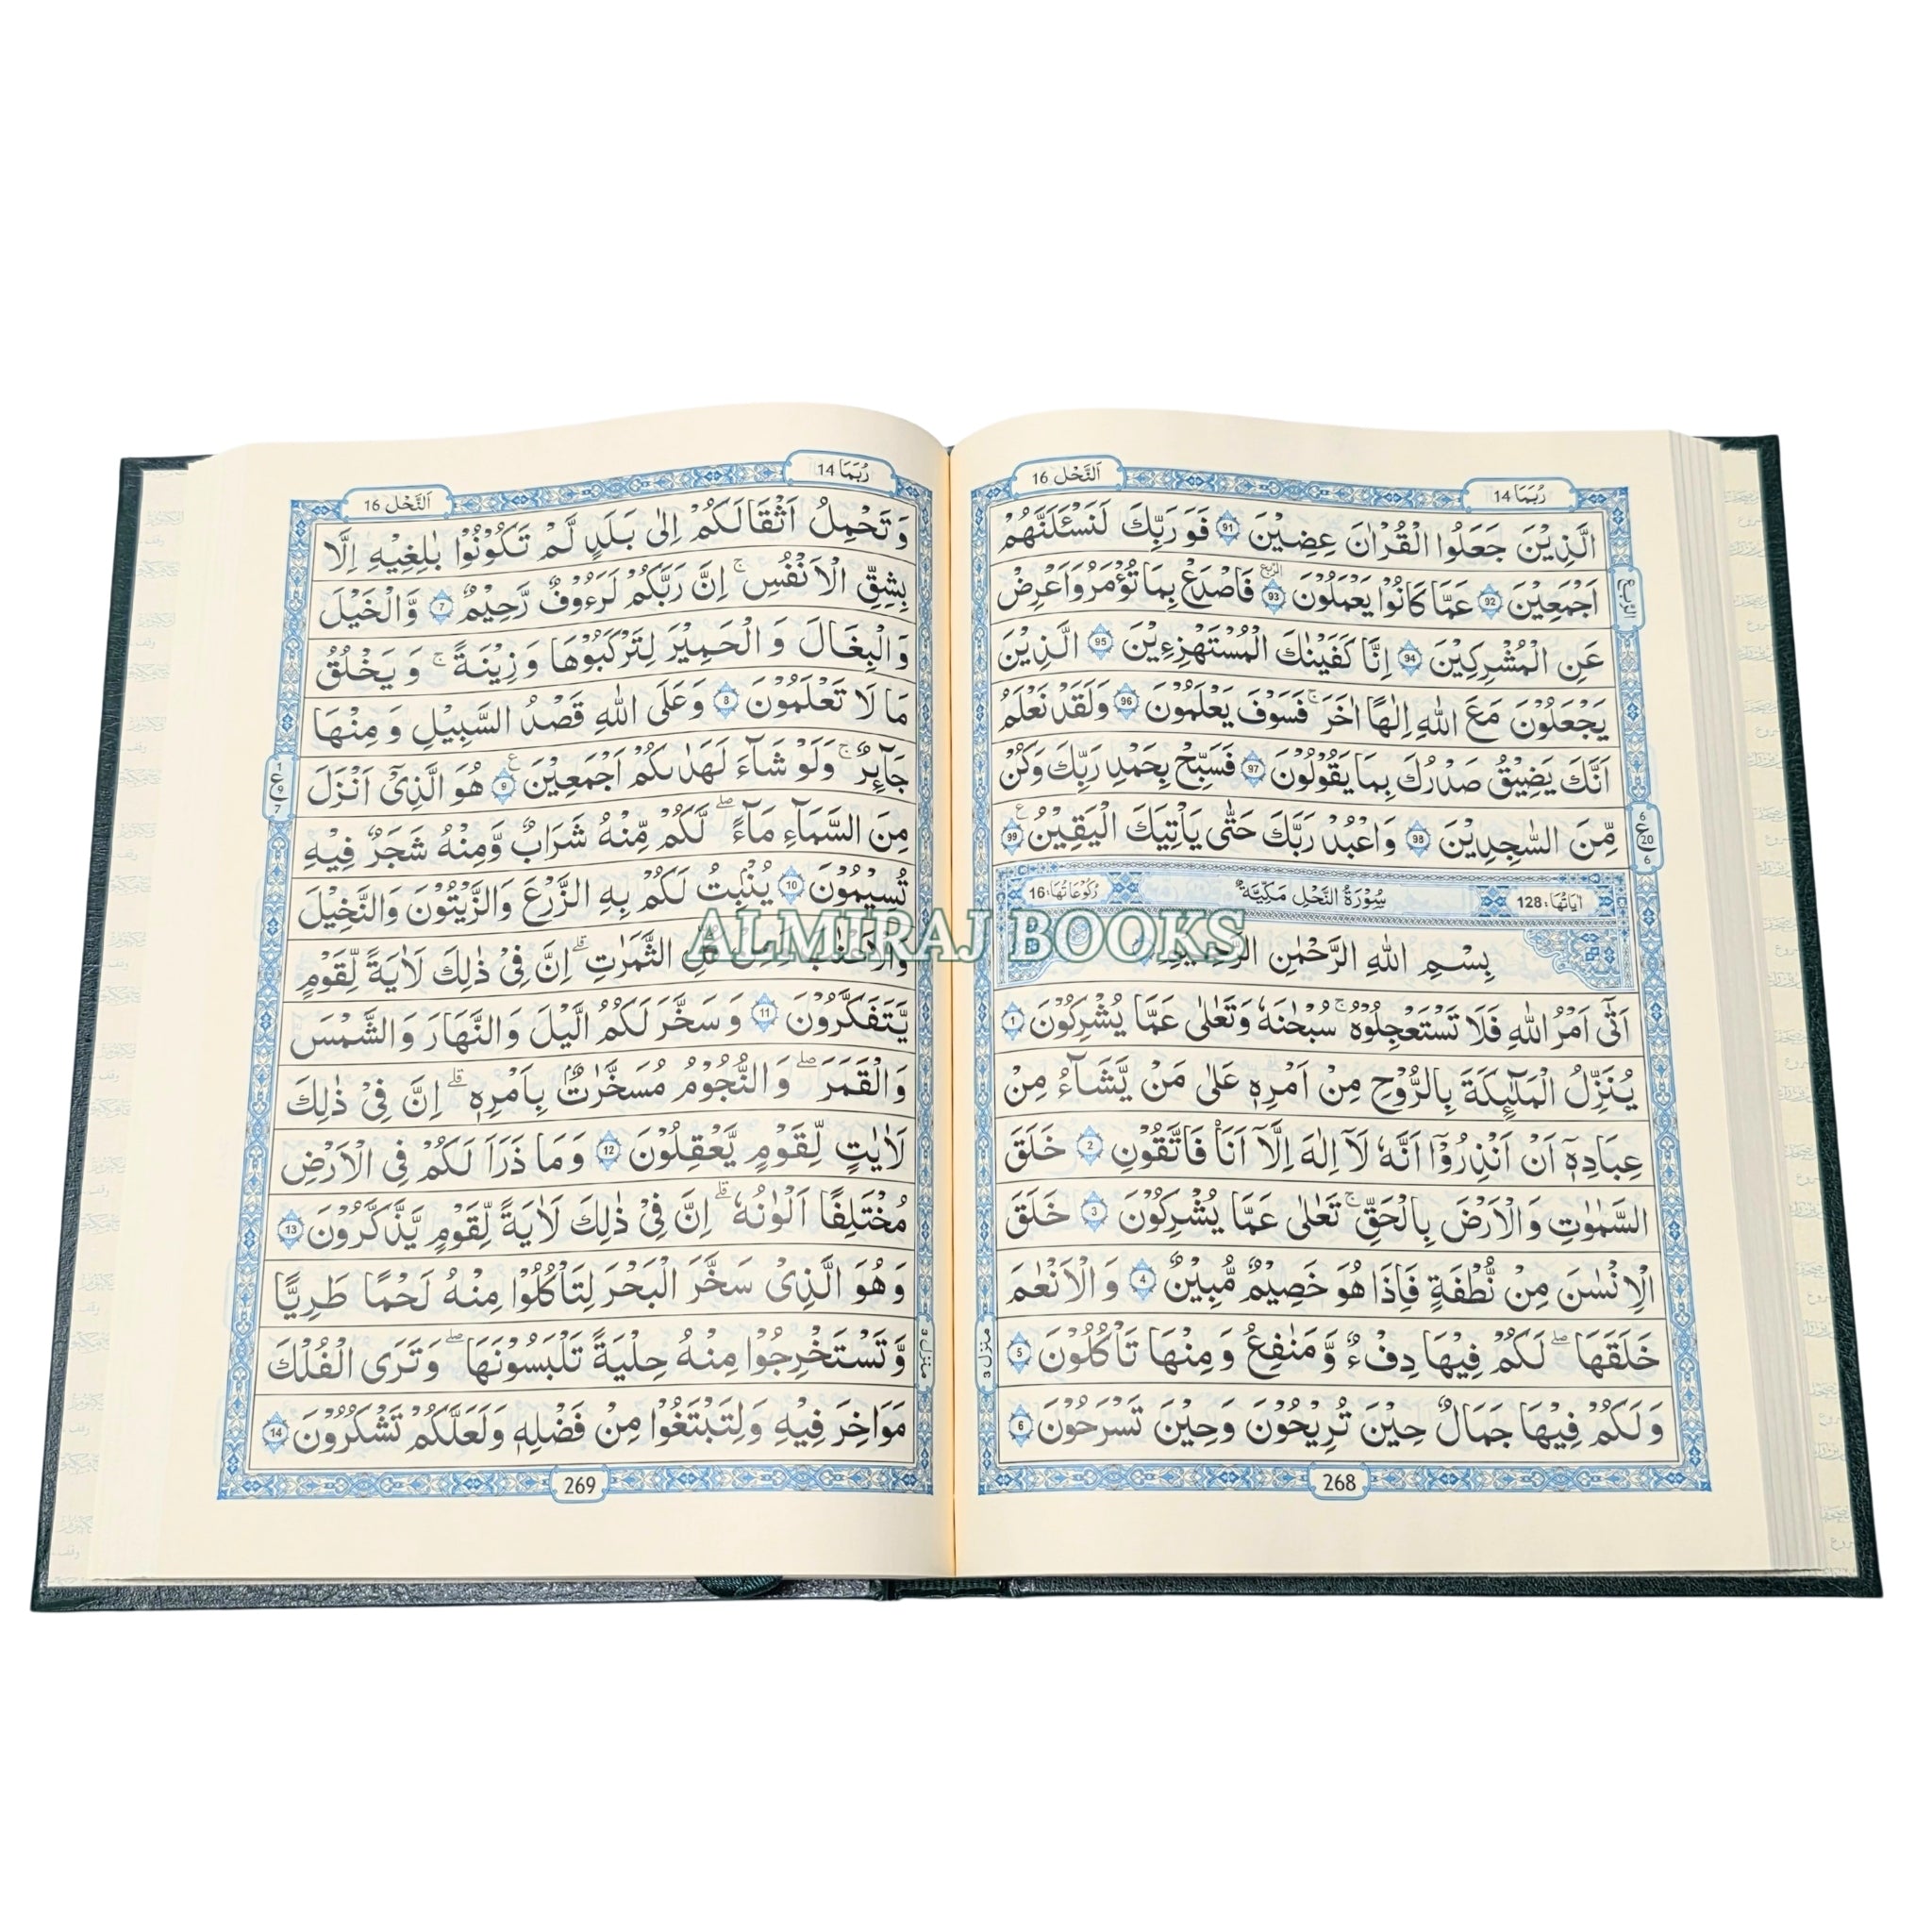 رُبَمَا 14
اَلنَّحْل 16
الَّذِيْنَ جَعَلُوا الْقُرْاٰنَ عِضِيْنَ 91 فَوَرَبِّكَ لَنَسْـَٔلَنَّهُمْ
اَجْمَعِيْنَ 92 عَمَّا كَانُوْا يَعْمَلُوْنَ 93 فَاصْدَعْ بِمَا تُؤْمَرُ وَاَعْرِضْ
الربع
عَنِ الْمُشْرِكِيْنَ 94 اِنَّا كَفَيْنٰكَ الْمُسْتَهْزِءِيْنَ 95 الَّذِيْنَ
يَجْعَلُوْنَ مَعَ اللّٰهِ اِلٰهًا اٰخَرَ ۚ فَسَوْفَ يَعْلَمُوْنَ 96 وَلَقَدْ نَعْلَمُ
اَنَّكَ يَضِيْقُ صَدْرُكَ بِمَا يَقُوْلُوْنَ 97 فَسَبِّحْ بِحَمْدِ رَبِّكَ وَكُنْ
مِّنَ السّٰجِدِيْنَ 98 وَاعْبُدْ رَبَّكَ حَتّٰى يَاْتِيَكَ الْيَقِيْنُ 99
6 ع 20 6
اٰيَاتُهَا: 128 سُوْرَةُ النَّحْلِ مَكِّيَّةٌ رُكُوْعَاتُهَا: 16
بِسْمِ اللّٰهِ الرَّحْمٰنِ
اَتٰٓى اَمْرُ اللّٰهِ فَلَا تَسْتَعْجِلُوْهُ ۚ سُبْحٰنَهٗ وَتَعٰلٰى عَمَّا يُشْرِكُوْنَ 1
يُنَزِّلُ الْمَلٰٓئِكَةَ بِالرُّوْحِ مِنْ اَمْرِهٖ عَلٰى مَنْ يَّشَآءُ مِنْ
عِبَادِهٖٓ اَنْ اَنْذِرُوْٓا اَنَّهٗ لَآ اِلٰهَ اِلَّآ اَنَا۠ فَاتَّقُوْنِ 2 خَلَقَ
السَّمٰوٰتِ وَالْاَرْضَ بِالْحَقِّ ۚ تَعٰلٰى عَمَّا يُشْرِكُوْنَ 3 خَلَقَ
الْاِنْسٰنَ مِنْ نُّطْفَةٍ فَاِذَا هُوَ خَصِيْمٌ مُّبِيْنٌ 4 وَالْاَنْعٰمَ
خَلَقَهَا ۖ لَكُمْ فِيْهَا دِفْءٌ وَّمَنٰفِعُ وَمِنْهَا تَاْكُلُوْنَ 5
وَلَكُمْ فِيْهَا جَمَالٌ حِيْنَ تُرِيْحُوْنَ وَحِيْنَ تَسْرَحُوْنَ 6
منزل 3
268
رُبَمَا 14
اَلنَّحْل 16
وَتَحْمِلُ اَثْقَالَكُمْ اِلٰى بَلَدٍ لَّمْ تَكُوْنُوْا بٰلِغِيْهِ اِلَّا
بِشِقِّ الْاَنْفُسِ ۚ اِنَّ رَبَّكُمْ لَرَءُوْفٌ رَّحِيْمٌ 7 وَّالْخَيْلَ
وَالْبِغَالَ وَالْحَمِيْرَ لِتَرْكَبُوْهَا وَزِيْنَةً ۚ وَيَخْلُقُ
مَا لَا تَعْلَمُوْنَ 8 وَعَلَى اللّٰهِ قَصْدُ السَّبِيْلِ وَمِنْهَا
جَآئِرٌ ۚ وَلَوْ شَآءَ لَهَدٰىكُمْ اَجْمَعِيْنَ 9 هُوَ الَّذِيْٓ اَنْزَلَ
1 ع 9 7
مِنَ السَّمَآءِ مَآءً ۖ لَّكُمْ مِّنْهُ شَرَابٌ وَّمِنْهُ شَجَرٌ فِيْهِ
تُسِيْمُوْنَ 10 يُنْۢبِتُ لَكُمْ بِهِ الزَّرْعَ وَالزَّيْتُوْنَ وَالنَّخِيْلَ
الثَّمَرٰتِ ۗ اِنَّ فِيْ ذٰلِكَ لَاٰيَةً لِّقَوْمٍ
يَّتَفَكَّرُوْنَ 11 وَسَخَّرَ لَكُمُ الَّيْلَ وَالنَّهَارَ وَالشَّمْسَ
وَالْقَمَرَ ۖ وَالنُّجُوْمُ مُسَخَّرٰتٌۢ بِاَمْرِهٖ ۗ اِنَّ فِيْ ذٰلِكَ
لَاٰيٰتٍ لِّقَوْمٍ يَّعْقِلُوْنَ 12 وَمَا ذَرَاَ لَكُمْ فِى الْاَرْضِ
مُخْتَلِفًا اَلْوٰنُهٗ ۗ اِنَّ فِيْ ذٰلِكَ لَاٰيَةً لِّقَوْمٍ يَّذَّكَّرُوْنَ 13
وَهُوَ الَّذِيْ سَخَّرَ الْبَحْرَ لِتَاْكُلُوْا مِنْهُ لَحْمًا طَرِيًّا
وَّتَسْتَخْرِجُوْا مِنْهُ حِلْيَةً تَلْبَسُوْنَهَا ۖ وَتَرَى الْفُلْكَ
مَوَاخِرَ فِيْهِ وَلِتَبْتَغُوْا مِنْ فَضْلِهٖ وَلَعَلَّكُمْ تَشْكُرُوْنَ 14
منزل 3
269
ALMIRAJ BOOKS